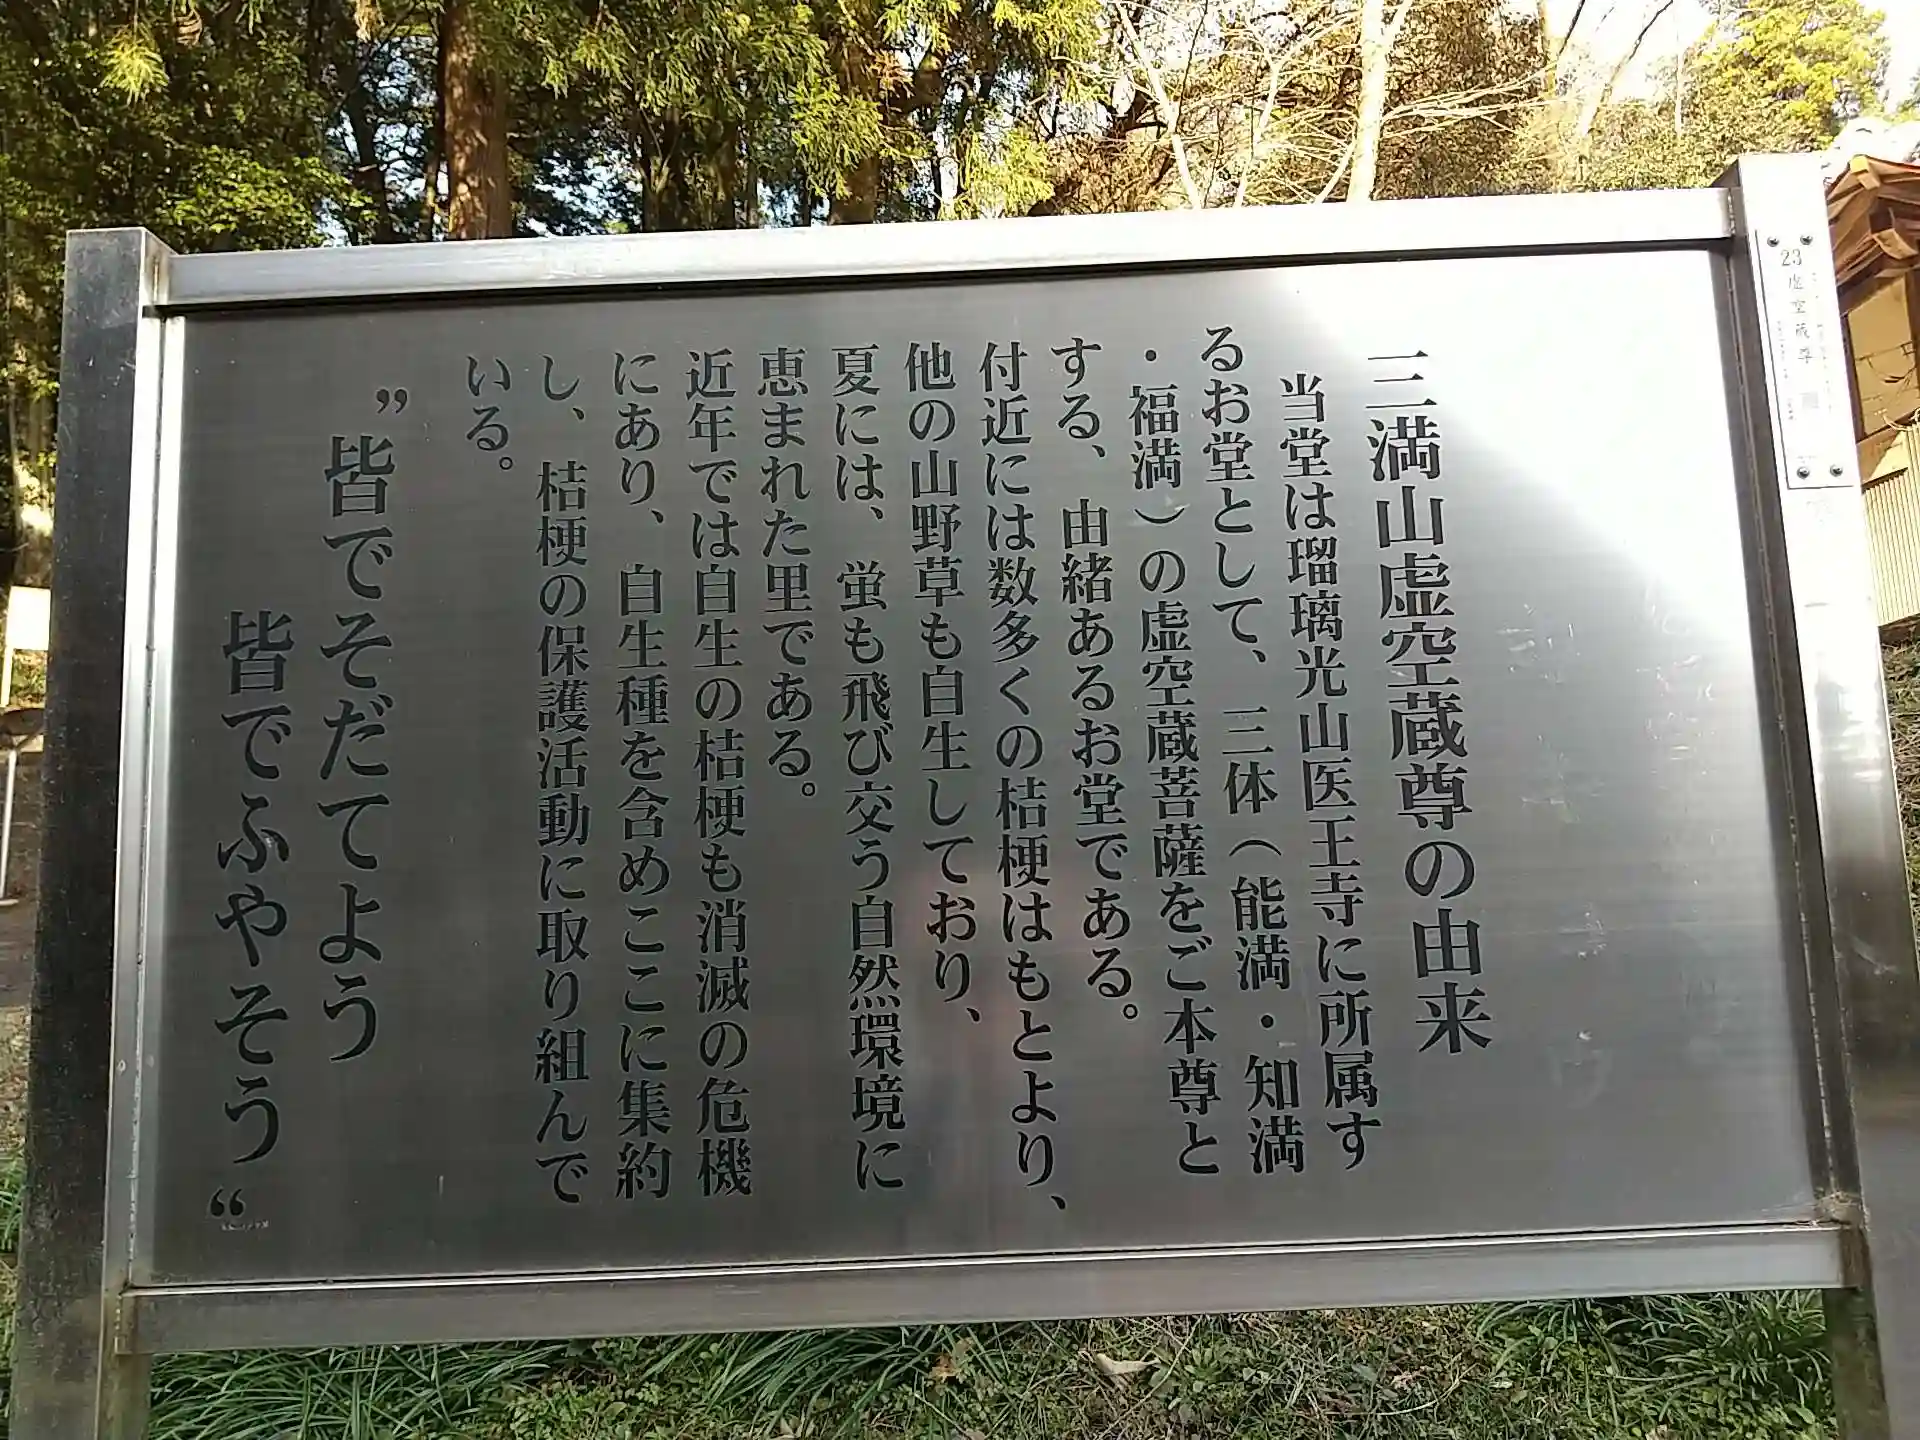 三満山虚空蔵尊の由来
当堂は瑠璃光山医王寺に所属す
るお堂として、三体（能満・知満
・福満）の虚空蔵菩薩をご本尊と
する、由緒あるお堂である。
付近には数多くの桔梗はもとより、
他の山野草も自生しており、
夏には、蛍も飛び交う自然環境に
恵まれた里である。
近年では自生の桔梗も消滅の危機
にあり、自生種を含めここに集約
し、桔梗の保護活動に取り組んで
いる。
”皆でそだてよう
皆でふやそう“
23
虚空蔵尊